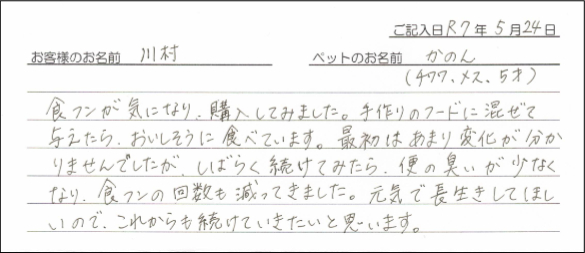 ご記入日R7年5月24日
お客様のお名前 川村 ペットのお名前 かのん
(チワワ、メス、5才)
食フンが気になり、購入してみました。手作りのフードに混ぜて
与えたら、おいしそうに食べています。最初はあまり変化が分か
りませんでしたが、しばらく続けてみたら、便の臭いが少なく
なり、食フンの回数も減ってきました。元気で長生きしてほし
いので、これからも続けていきたいと思います。